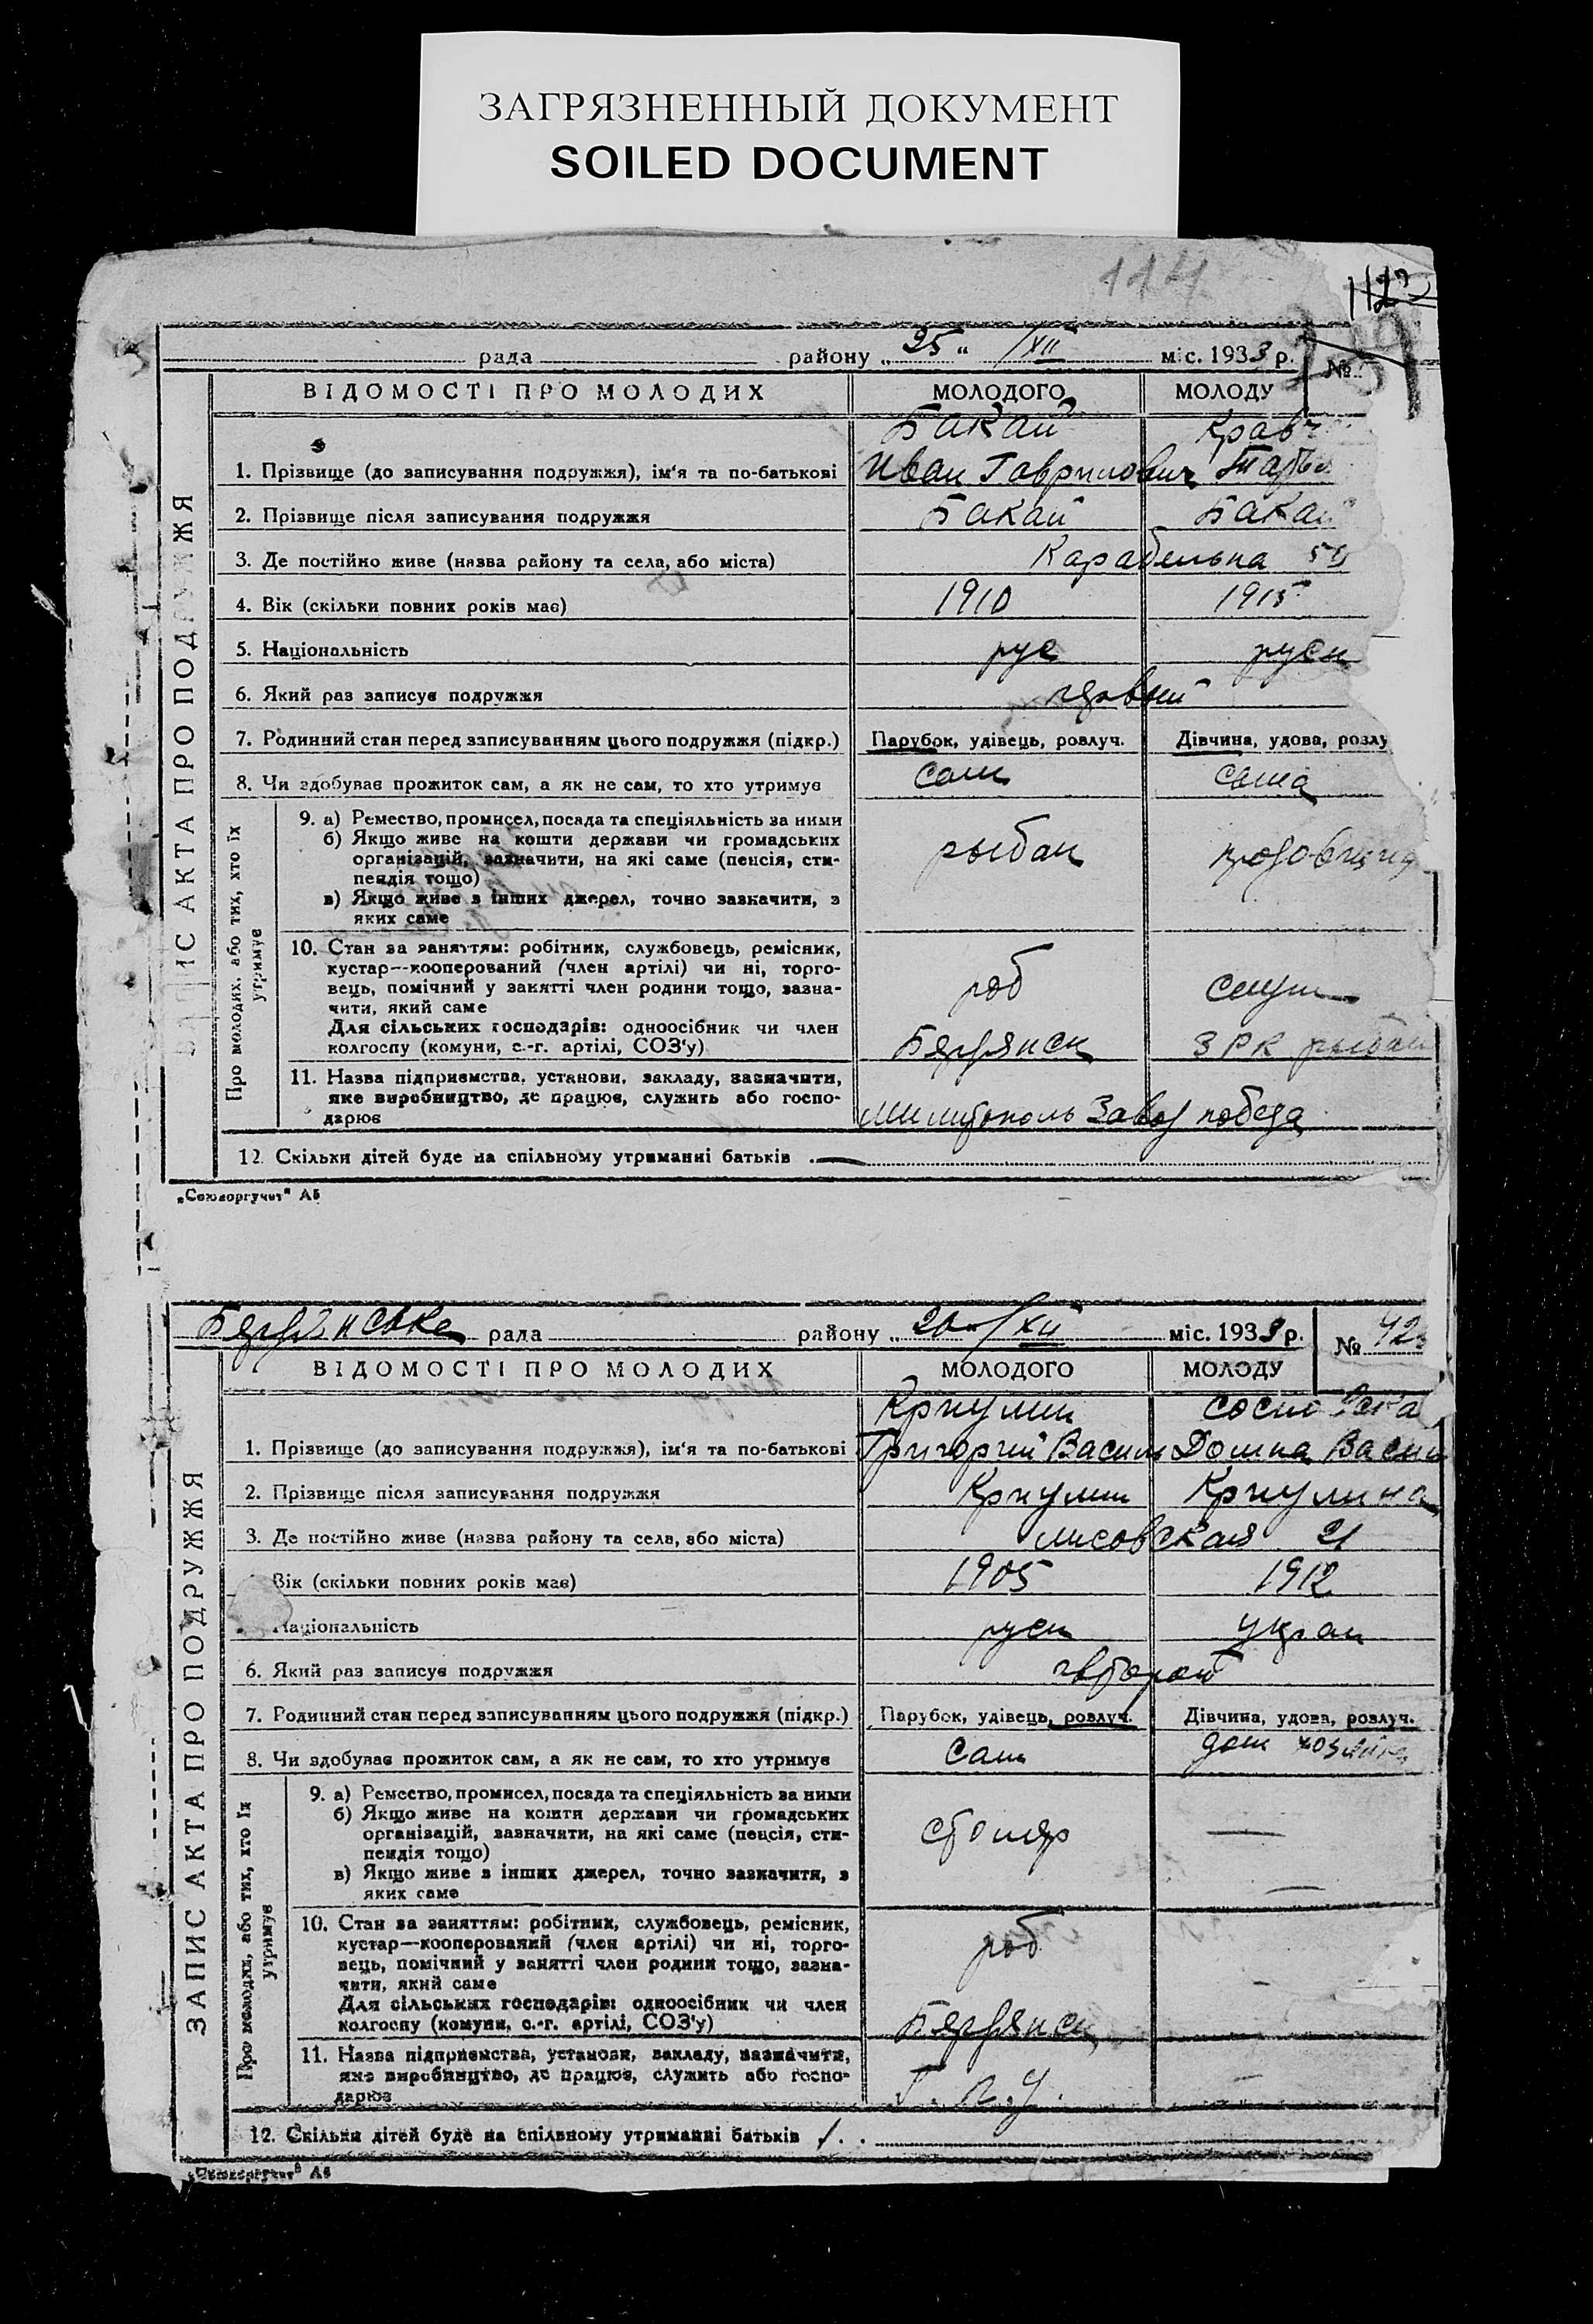 ЗАГРЯЗНЕННЫЙ ДОКУМЕНТ
SOILED DOCUMENT
114
рада района „25“ /XII міс. 1933 р. №
ВІДОМОСТІ ПРО МОЛОДИХ МОЛОДОГО МОЛОДУ
Бакай Крав
1. Прізвище (до записування подружжя), ім'я та по-батькові Иван Гаврилович
2. Прізвище після записування подружжя Бакай Бакай
3. Де постійно живе (назва району та села, або міста) Карабельна
4. Вік (скільки повних років має) 1910 1915
5. Національність рус руск
6. Який раз записує подружжя первый
7. Родинний стан перед записуванням цього подружжя (підкр.) Парубок, удівець, розлуч. Дівчина, удова, розлу
8. Чи здобуває прожиток сам, а як не сам, то хто утримує сам сама
ЗАПИС АКТА ПРО ПОДРУЖЖЯ
Про молодих, або тих, хто їх утримує
9. а) Ремество, промисел, посада та спеціяльність за ними
б) Якщо живе на кошти держави чи громадських
організацій, зазначити, на які саме (пенсія, сти-
пендія тощо) рыбак
в) Якщо живе з інших джерел, точно зазначити, з
яких саме
10. Стан за заняттям: робітник, службовець, ремісник,
кустар—кооперований (член артілі) чи ні, торго-
вець, помічний у занятті член родини тощо, зазна- роб служ
чити, який саме
Для сільських господарів: одноосібник чи член
колгоспу (комуни, с.-г. артілі, СОЗ'у) Бердянск ЗРК рыбак
11. Назва підприємства, установи, закладу, зазначити,
яке виробництво, де працює, служить або госпо-
дарює Завод победа
12. Скільки дітей буде на спільному утриманні батьків —
„Союзоргучет“ А5
Бердянське рада району „26“ /XII міс. 1933 р. № 42
ВІДОМОСТІ ПРО МОЛОДИХ МОЛОДОГО МОЛОДУ
1. Прізвище (до записування подружжя), ім'я та по-батькові Григорий Василь Домна Васил
2. Прізвище після записування подружжя
3. Де постійно живе (назва району та села, або міста) Лисовская 21
Вік (скільки повних років має) 1905 1912
Національність руск украи
6. Який раз записує подружжя второй
7. Родинний стан перед записуванням цього подружжя (підкр.) Парубок, удівець, розлуч. Дівчина, удова, розлуч.
8. Чи здобуває прожиток сам, а як не сам, то хто утримує сам дом хозяйка
ЗАПИС АКТА ПРО ПОДРУЖЖЯ
Про молодих, або тих, хто їх утримує
9. а) Ремество, промисел, посада та спеціяльність за ними
б) Якщо живе на кошти держави чи громадських
організацій, зазначити, на які саме (пенсія, сти- столяр —
пендія тощо)
в) Якщо живе з інших джерел, точно зазначити, з
яких саме —
10. Стан за заняттям: робітник, службовець, ремісник,
кустар—кооперований (член артілі) чи ні, торго- роб
вець, помічний у занятті член родини тощо, зазна-
чити, який саме
Для сільських господарів: одноосібник чи член
колгоспу (комуни, с.-г. артілі, СОЗ'у) Бердянск
11. Назва підприємства, установи, закладу, зазначити,
яке виробництво, де працює, служить або госпо-
дарює Г. П. У.
12. Скільки дітей буде на спільному утриманні батьків
„Союзоргучет“ А5